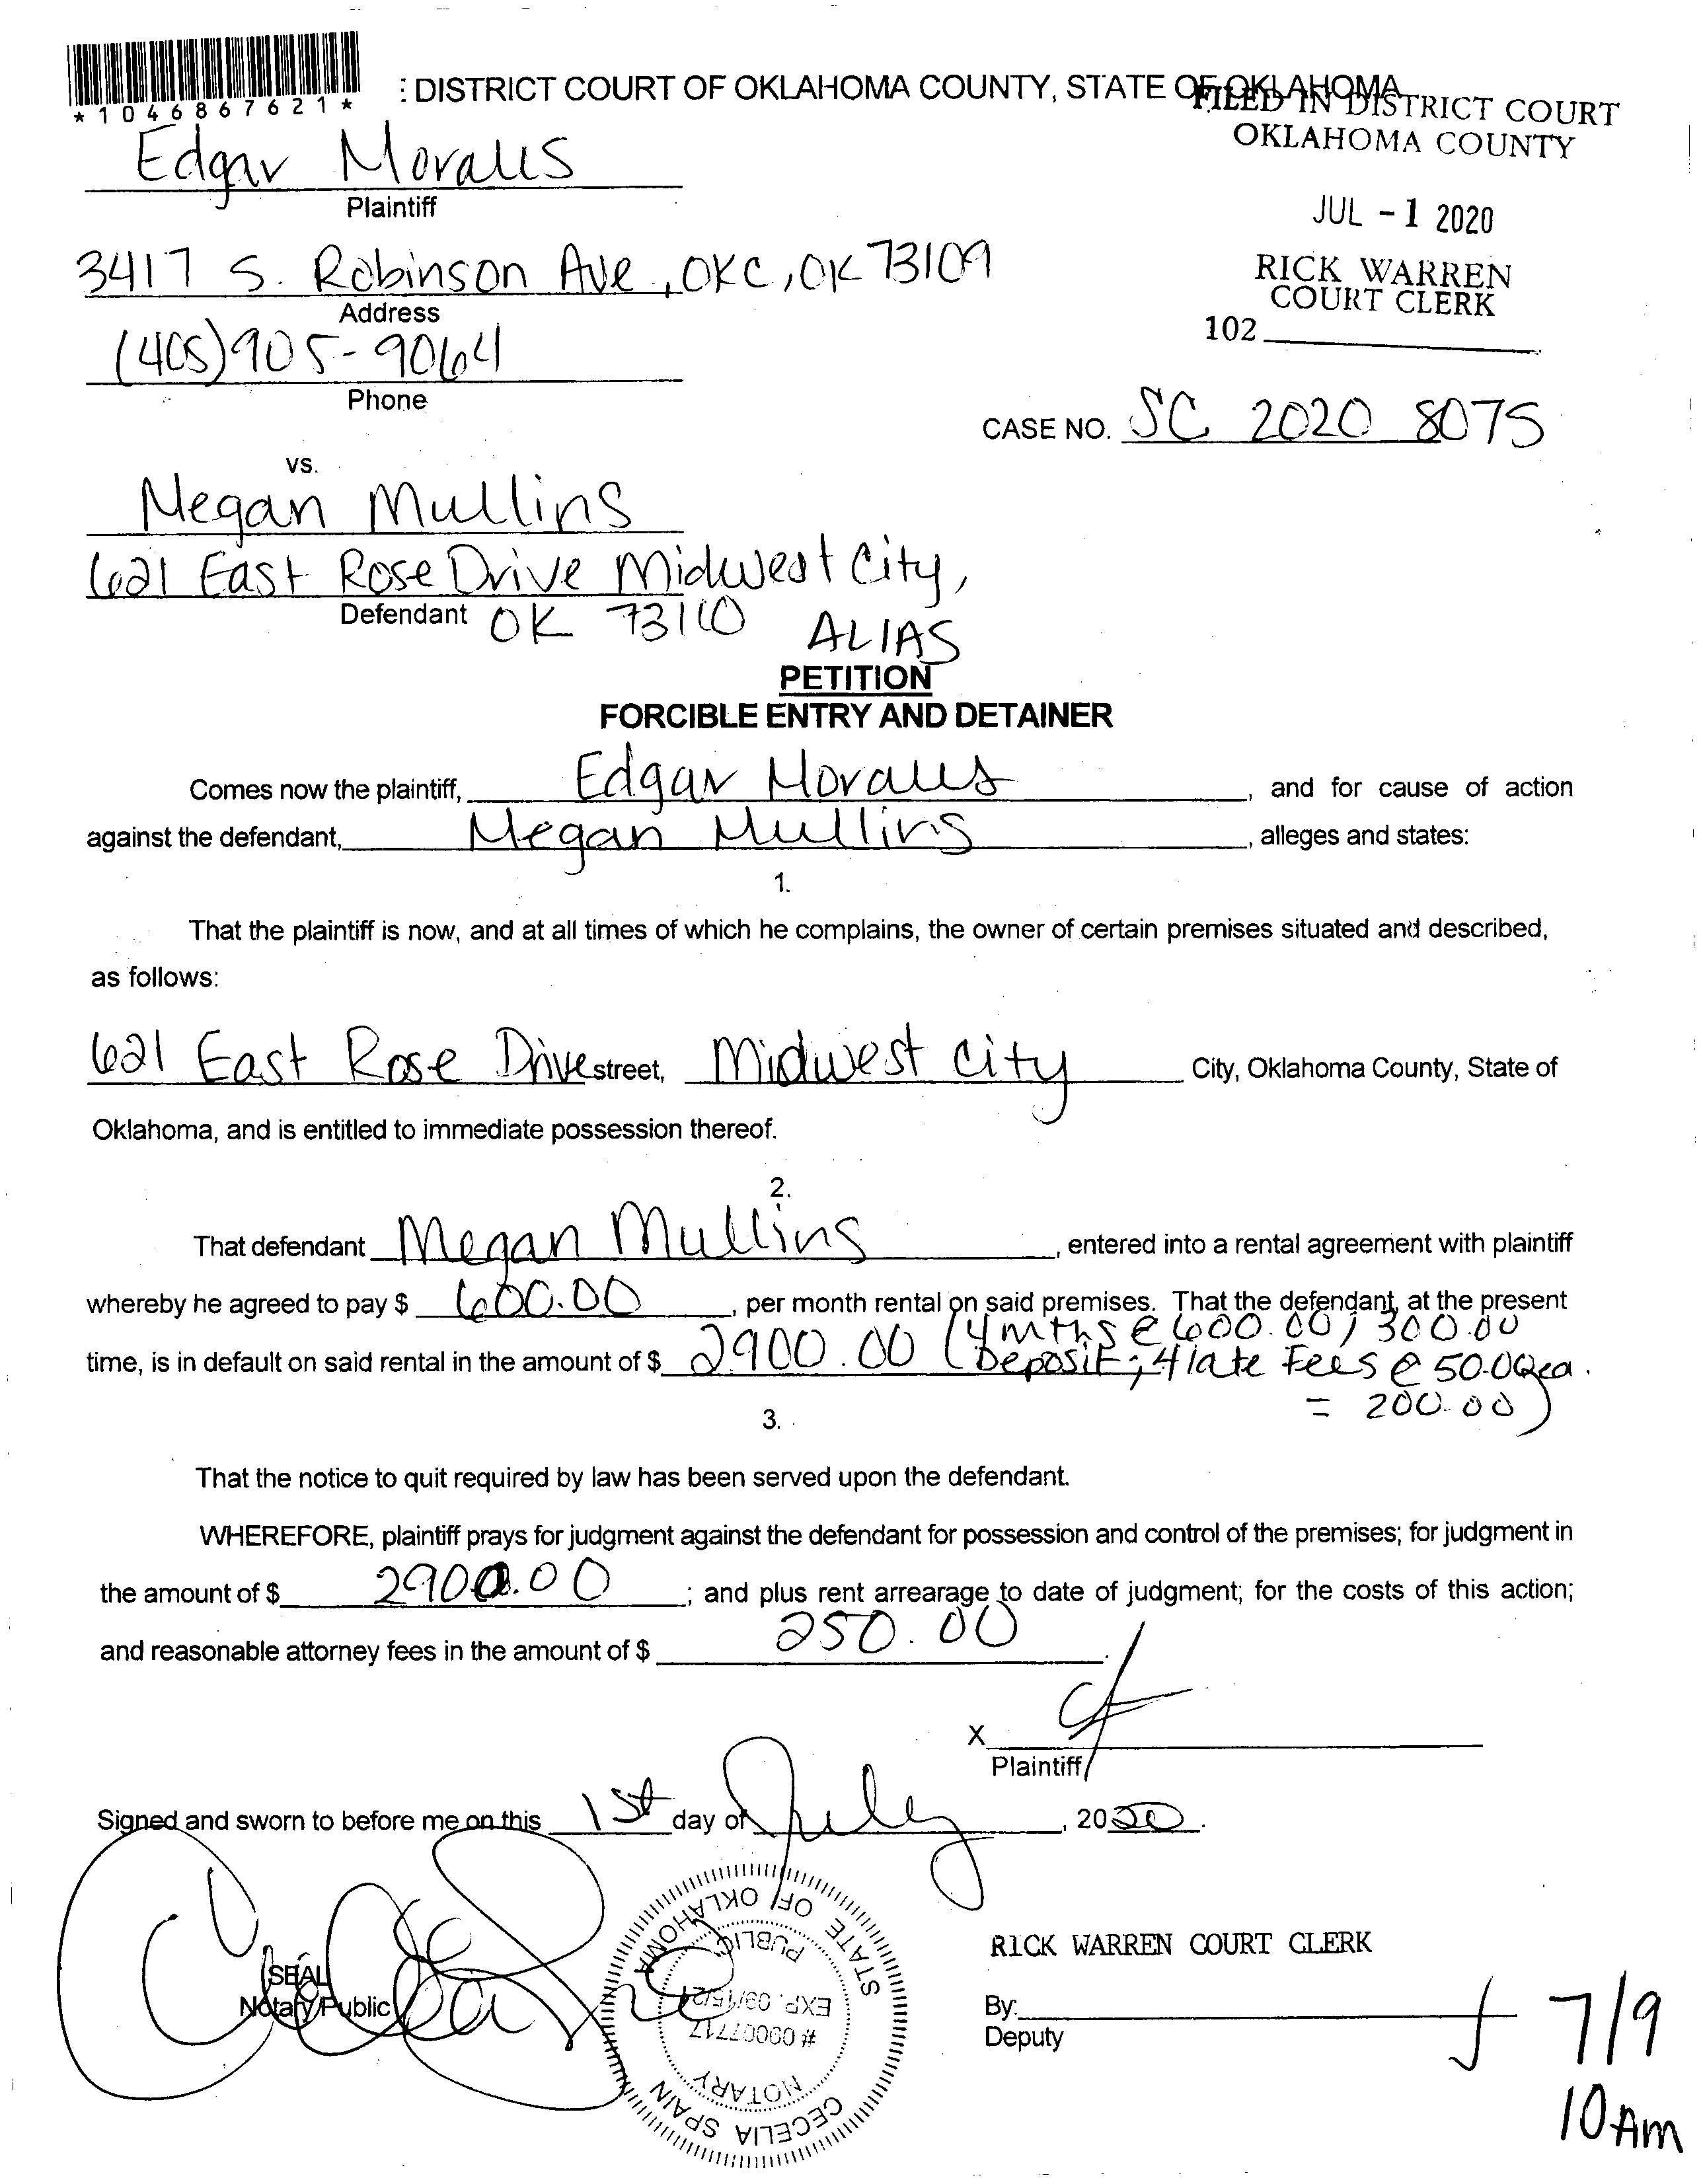 *1046867621*
: DISTRICT COURT OF OKLAHOMA COUNTY, STATE OF OKLAHOMA
FILED IN DISTRICT COURT
OKLAHOMA COUNTY
Edgar Morales
Plaintiff
JUL - 1 2020
3417 S. Robinson Ave, OKC, OK 73109
Address
RICK WARREN
COURT CLERK
102
(405) 905-9064
Phone
CASE NO. SC 2020 8075
vs.
Megan Mullins
621 East Rose Drive Midwest City,
Defendant OK 73110
ALIAS
PETITION
FORCIBLE ENTRY AND DETAINER
Comes now the plaintiff, Edgar Morales, and for cause of action
against the defendant, Megan Mullins, alleges and states:
1.
That the plaintiff is now, and at all times of which he complains, the owner of certain premises situated and described,
as follows:
621 East Rose Drive street, Midwest City City, Oklahoma County, State of
Oklahoma, and is entitled to immediate possession thereof.
2.
That defendant Megan Mullins, entered into a rental agreement with plaintiff
whereby he agreed to pay $ 600.00, per month rental on said premises. That the defendant, at the present
time, is in default on said rental in the amount of $ 2900.00 (4 mths @ 600.00; 300.00
Deposit; 4 late Fees @ 50.00 ea.
= 200.00)
3.
That the notice to quit required by law has been served upon the defendant.
WHEREFORE, plaintiff prays for judgment against the defendant for possession and control of the premises; for judgment in
the amount of $ 2900.00; and plus rent arrearage to date of judgment; for the costs of this action;
and reasonable attorney fees in the amount of $ 250.00.
X
Plaintiff
Signed and sworn to before me on this 1st day of July, 2020.
(SEAL
Notary Public
CECELIA SPAIN
STATE OF OKLAHOMA
NOTARY
# 00007717
EXP. 09/15/21
PUBLIC
RICK WARREN COURT CLERK
By:
Deputy
7/9
10 Am